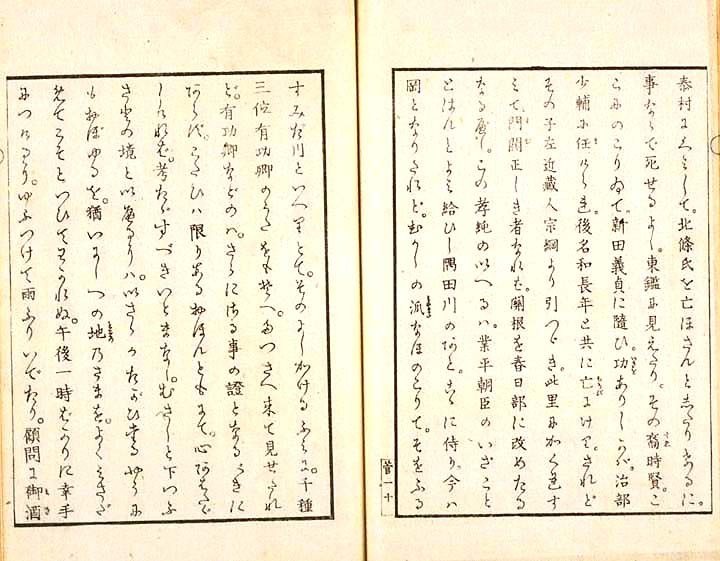 泰村にくみして。北條氏を亡ほさんとしたりけるに。
事ならで死せるよし。東鑑に見えたり。その裔時賢。こ
らにのこりゐて。新田義貞に隨ひ。功ありしかバ。治部
少輔に任ぜられ。後名和長年と共に亡にけり。されど
その子左近藏人宗綱より引つゞき。此里にかくれす
みて。門閥正しき者なれば。關根を春日部に改めたる
なる歴し。この孝純のいへるハ。業平朝臣のいざこと
とはんとよみ給ひし隅田川のあと。こゝに侍り。今ハ
岡となりたれど。むかしの派なほのこりて。そをふる
すみだ川といへりとて。そのよしかけるふみに。千種
三位有功卿のうたをもそへ。みつさへ来て見せたれ
ど。有功卿などのハ。さらにさる事の證となるべきに
あらず。こたびハ限りあるおほんともにて。心あはたゞ
しければ。考たゞすべきいとまなし。むさしと下つふ
さとの境といへるハ。いさゝかたがひたるやうに
もおぼゆるを。猶いまし つの地乃さまを。よくとひき
ゝてこそといひてわかれぬ。午後一時ばかりに幸手
につけり。ゆふつけて雨ふりいでたり。顧問に御酒
管一十